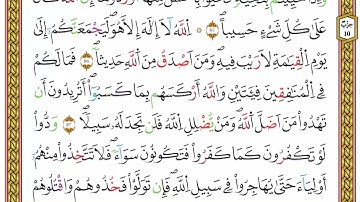 عَلَىٰ كُلِّ شَىْءٍ حَسِيبًا ۝٨٦ ٱللَّهُ لَآ إِلَـٰهَ إِلَّا هُوَ ۚ لَيَجْمَعَنَّكُمْ إِلَىٰ
حزب 10
يَوْمِ ٱلْقِيَـٰمَةِ لَا رَيْبَ فِيهِ ۗ وَمَنْ أَصْدَقُ مِنَ ٱللَّهِ حَدِيثًا ۝٨٧ فَمَا لَكُمْ
فِى ٱلْمُنَـٰفِقِينَ فِئَتَيْنِ وَٱللَّهُ أَرْكَسَهُم بِمَا كَسَبُوٓا۟ ۚ أَتُرِيدُونَ أَن
تَهْدُوا۟ مَنْ أَضَلَّ ٱللَّهُ ۖ وَمَن يُضْلِلِ ٱللَّهُ فَلَن تَجِدَ لَهُۥ سَبِيلًا ۝٨٨ وَدُّوا۟
لَوْ تَكْفُرُونَ كَمَا كَفَرُوا۟ فَتَكُونُونَ سَوَآءً ۖ فَلَا تَتَّخِذُوا۟ مِنْهُمْ
أَوْلِيَآءَ حَتَّىٰ يُهَاجِرُوا۟ فِى سَبِيلِ ٱللَّهِ ۚ فَإِن تَوَلَّوْا۟ فَخُذُوهُمْ وَٱقْتُلُوهُمْ